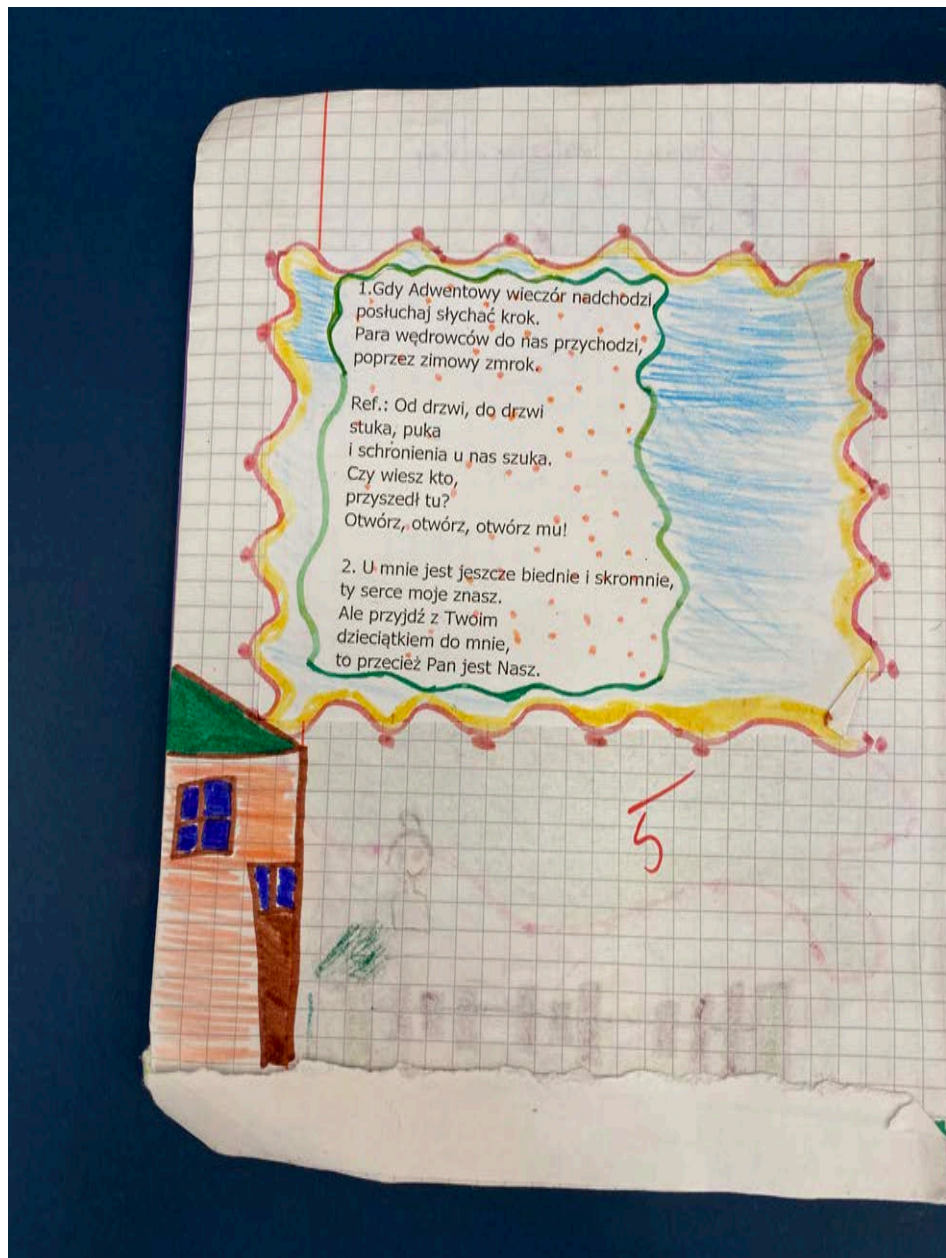 1.Gdy Adwentowy wieczór nadchodzi,
posłuchaj słychać krok.
Para wędrowców do nas przychodzi,
poprzez zimowy zmrok.
Ref.: Od drzwi, do drzwi
stuka, puka
i schronienia u nas szuka.
Czy wiesz kto,
przyszedł tu?
Otwórz, otwórz, otwórz mu!
2. U mnie jest jeszcze biednie i skromnie,
ty serce moje znasz.
Ale przyjdź z Twoim
dzieciątkiem do mnie,
to przecież Pan jest Nasz.
5